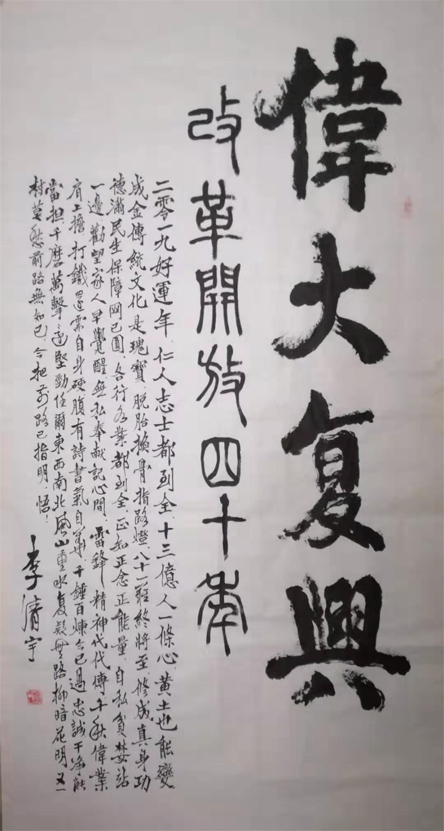 偉大复興
改革開放四十年
二零一九好運年仁人志士都到全十三億人一條心黄土也能變
成金傳統文化是瑰寶脱胎換骨指路燈八十一難終將至修成真身功
德滿民生保障网已圓各行各業都到全正知正念正能量自私貪婪站
一邊勸望家人早覺醒無私奉献記心間雷鋒精神代代傳千秋偉業
肩上擔打鐵還需自身硬腹有詩書氣自華千錘百煉今已過忠誠干净能
當担千磨萬擊還堅勁任爾東西南北風山重水复疑無路柳暗花明又一
村莫愁前路無知已今把前路已指明悟！
李清宇